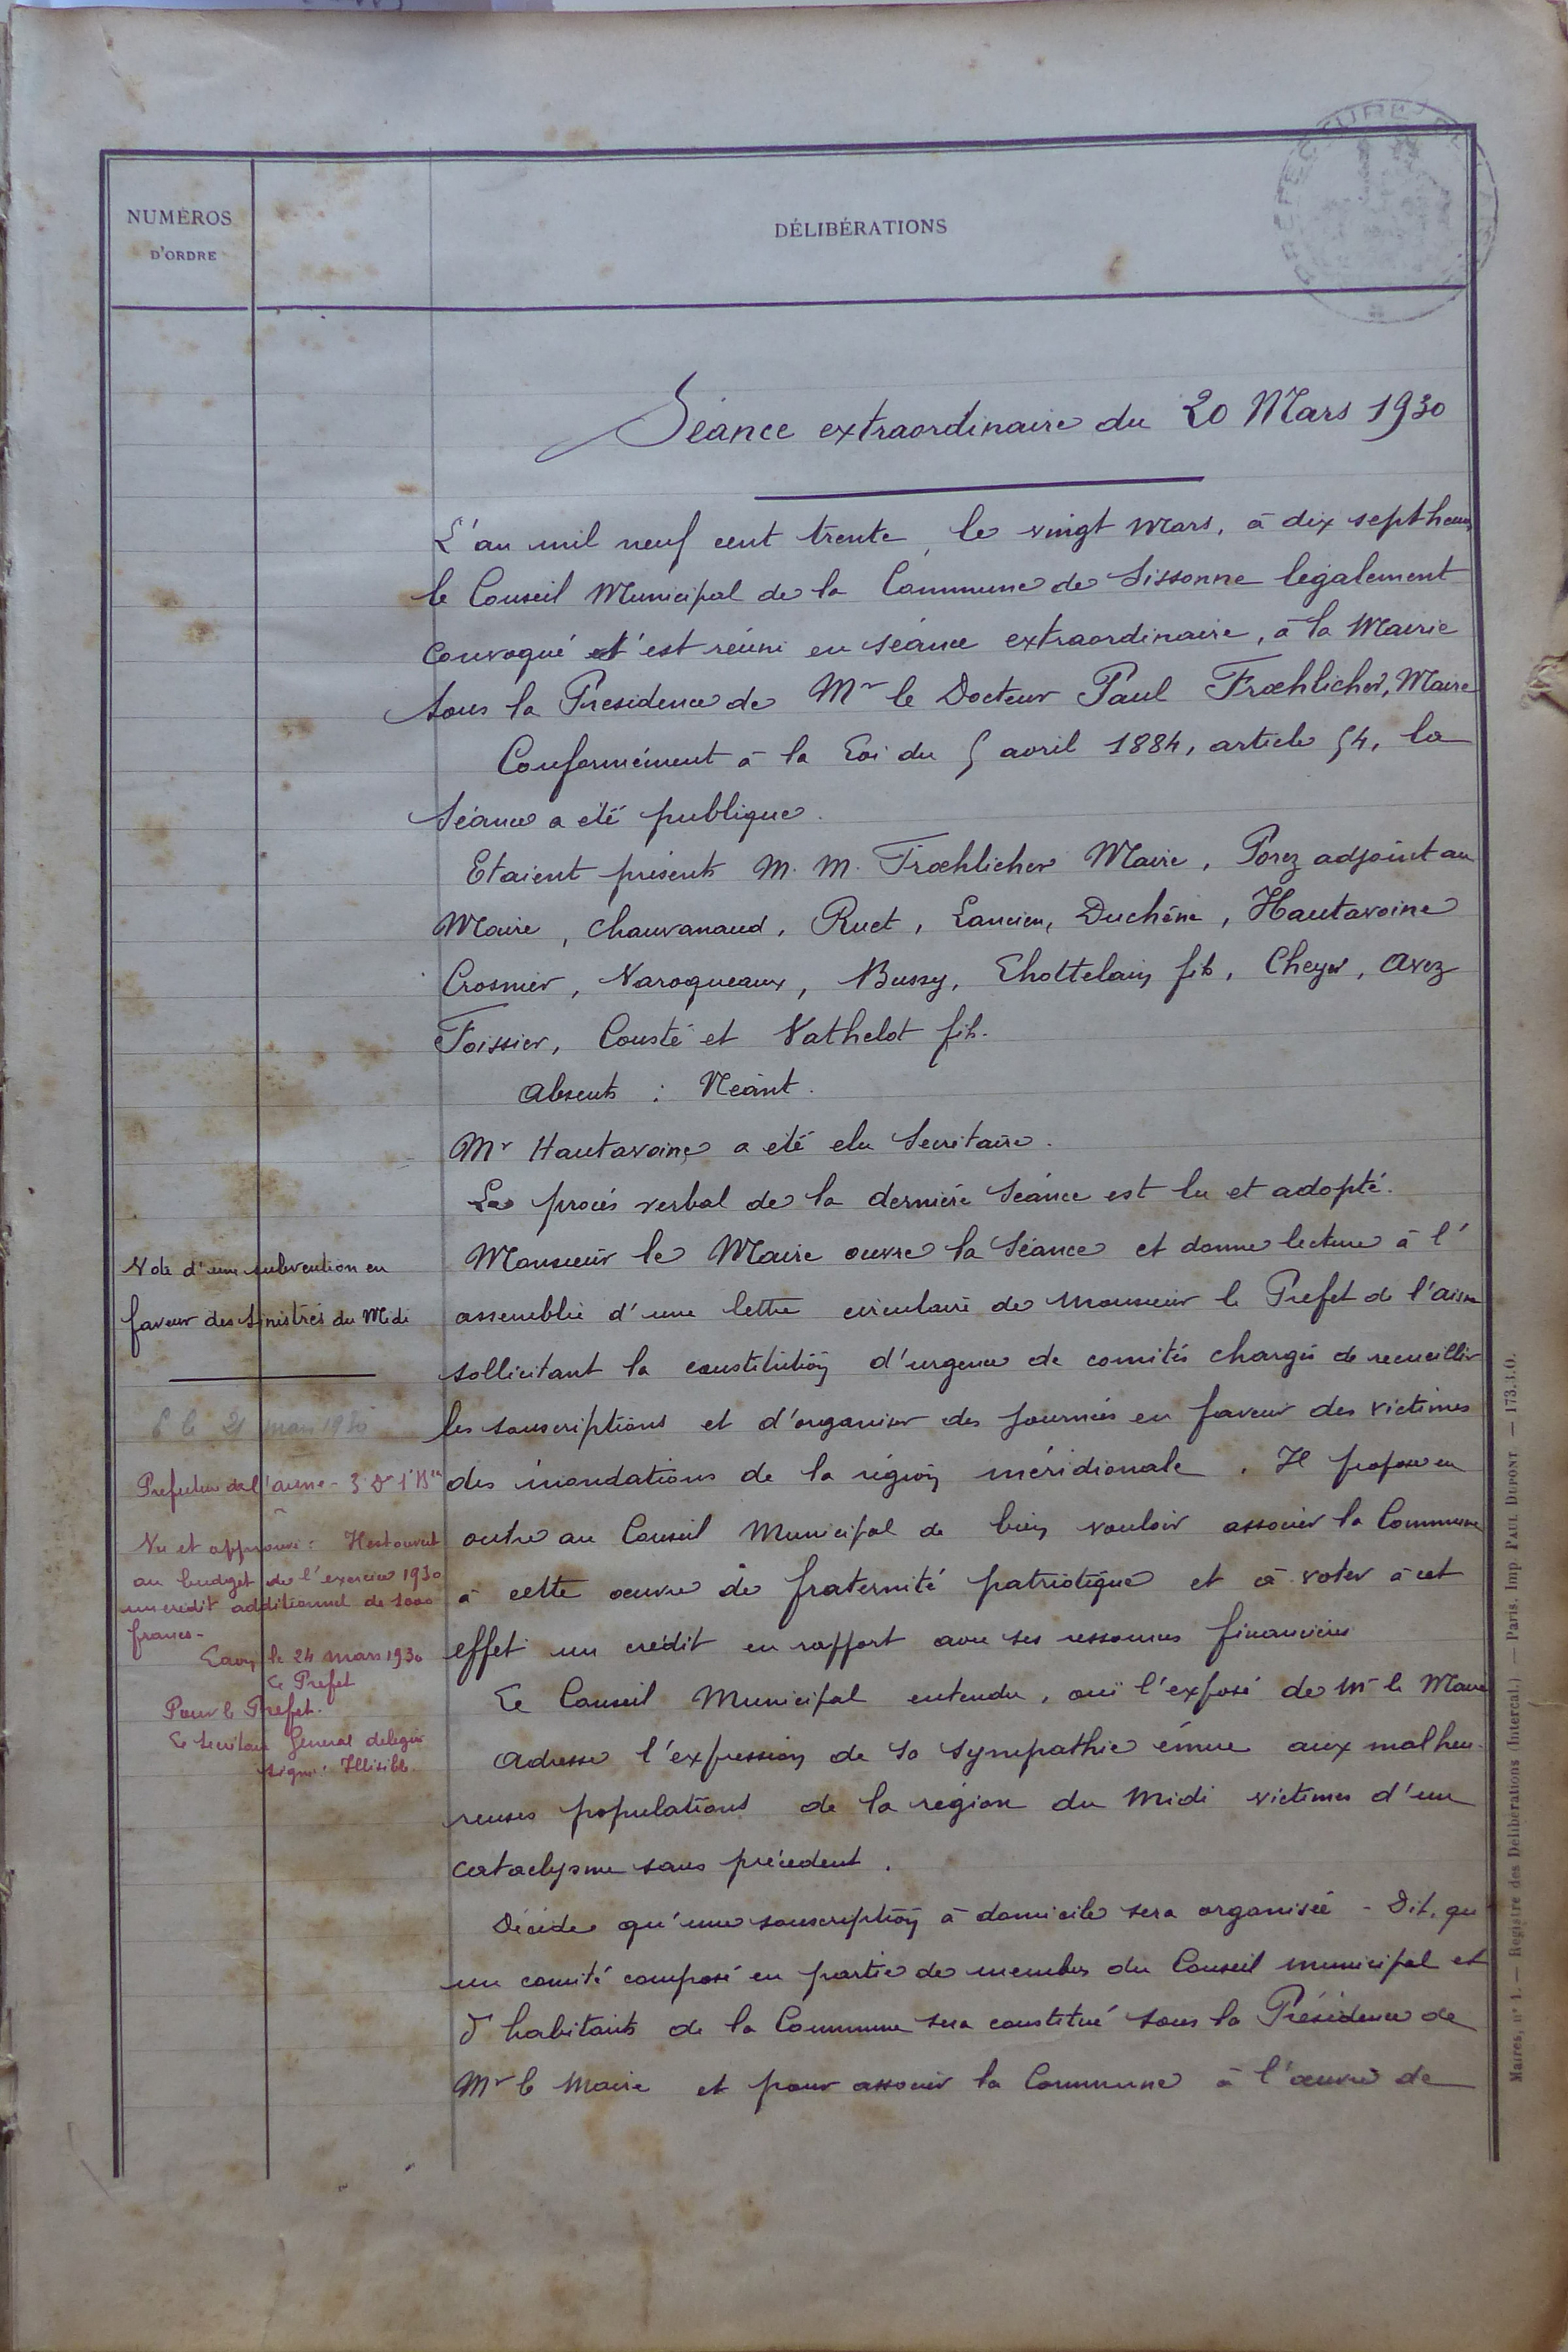 NUMÉROS
D'ORDRE
DÉLIBÉRATIONS
Séance extraordinaire du 20 Mars 1930
L'an mil neuf cent trente, le vingt Mars, à dix sept heures
le Conseil Municipal de la Commune de Sissonne légalement
convoqué s'est réuni en séance extraordinaire, à la Mairie
sous la Présidence de Mr le Docteur Paul Frœhlicher, Maire
Conformément à la Loi du 5 avril 1884, article 54, la
Séance a été publique.
Etaient présents M. M. Frœhlicher Maire, Porez adjoint au
Maire, Chauvanaud, Ruet, Lancien, Duchêne, Hautavoine
Crosnier, Varoqueaux, Bussy, Lhottelain fils, Cheyer, Avez
Foissier, Cousté et Vathelot fils.
Absents : Néant.
Mr Hautavoine a été élu Secrétaire.
Le procés verbal de la dernière Séance est lu et adopté.
Vote d'une subvention en
faveur des Sinistrés du Midi
Monsieur le Maire ouvre la Séance et donne lecture à l'
assemblée d'une lettre circulaire de Monsieur le Préfet de l'aisne
sollicitant la constitution d'urgence de comités chargés de recueillir
les souscriptions et d'organiser des journées en faveur des victimes
des inondations de la région méridionale. Il propose en
outre au Conseil Municipal de bien vouloir associer la Commune
à cette œuvre de fraternité patriotique et à voter à cet
effet un crédit en rapport avec ses ressources financières
Le Conseil Municipal entendu, ouï l'exposé de Mr le Maire
Adresse l'expression de sa sympathie émue aux malheu-
reuses populations de la région du Midi victimes d'un
cataclysme sans précédent.
Décide qu'une souscription à domicile sera organisée - Dit, qu
un comité composé en partie de membres du Conseil municipal et
d'habitants de la Commune sera constitué sous la Présidence de
Mr le Maire et pour associer la Commune à l'œuvre de
le 21 mars 1930
Préfecture de l'aisne - 3e Don 1er Beau
Vu et approuvé : Il est ouvert
au budget de l'exercice 1930
un crédit additionnel de 1000
francs -
Laon, le 24 mars 1930
Le Préfet
Pour le Préfet.
Le Secrétaire Général délégué
signé : Illisible.
Mairies, n° 1. — Registre des Délibérations (Intercal.) — Paris, Imp. PAUL DUPONT — 173.3.O.